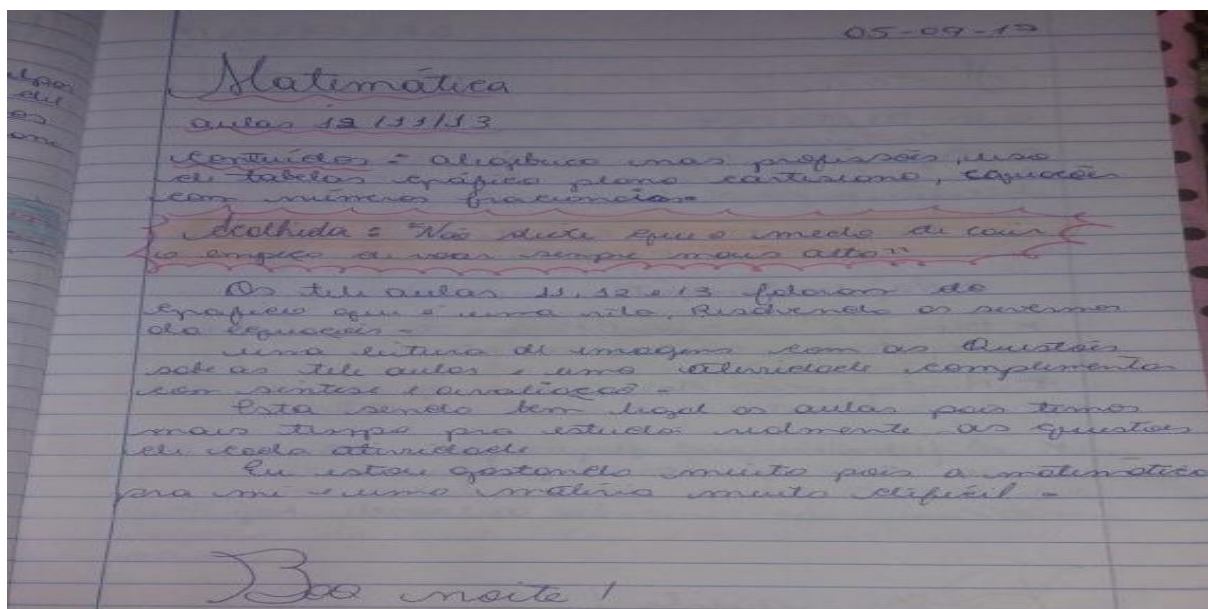 05-09-19
Matemática
aulas 12/11/13
Contuídos = nas profissões, uso
de tabelas gráfico plano cartesiano, equações
com números
Acolhida = "Não deixe que o medo de cair
o empeça de voar sempre mais alto"
Os tele aulas 11, 12 e 13 falaram do
gráfico que é uma
da equações -
uma leitura de imagens com as Questões
sobe as tele aulas e uma atividade complementa
com síntese e avaliação -
Esta sendo bem legal as aulas pois temos
mais tempo pra estuda realmente as questões
de cada atividade
Eu estou gostando muito pois a matemática
pra mi é uma matéria muito difícil -
Boa noite!